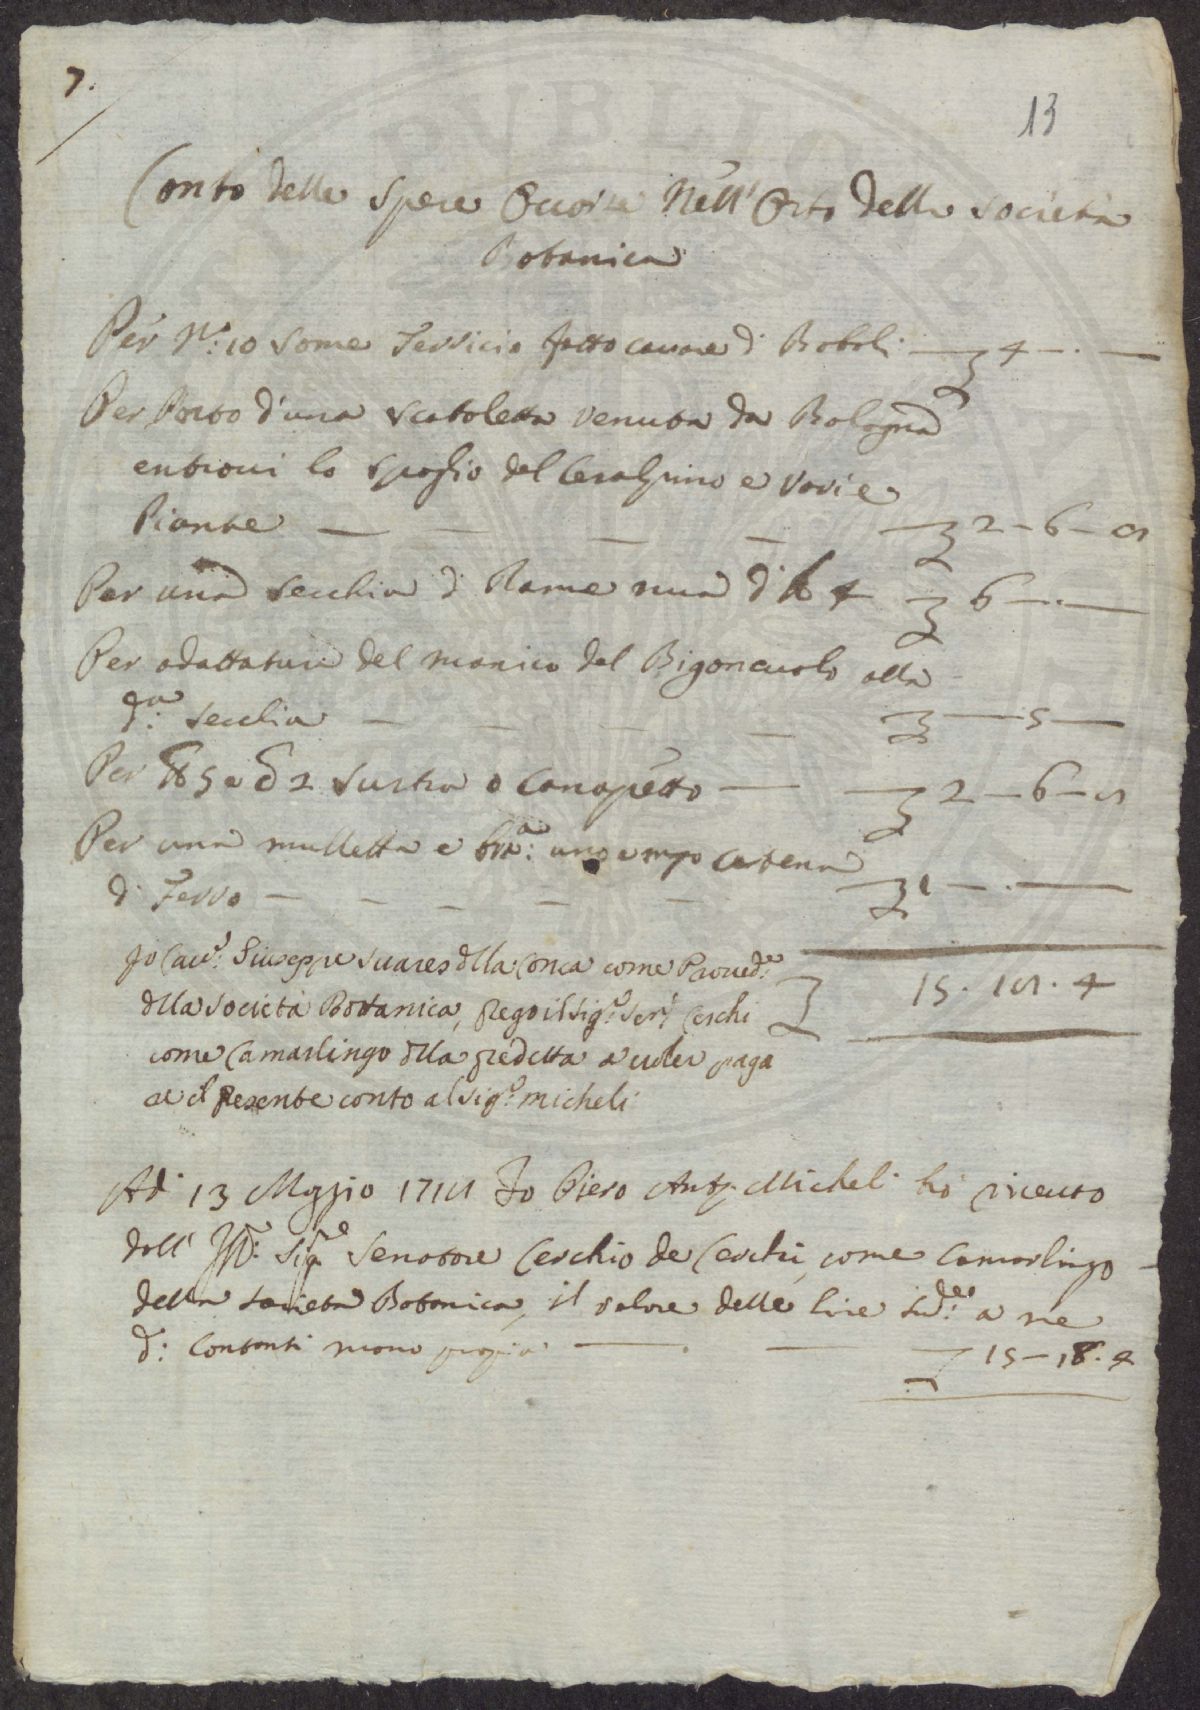 7.
13
Conto delle Spese Occorse Nell'Orto della Società
Botanica
Per N.° 10 some Terriccio fatto cavare di Boboli — 4 — . —
Per Porto d'una scatoletta venuta da Bologna
entrovi lo spoglio del Cesalpino e varie
Piante — — — — 2 — 6 — 8
Per una secchia di Rame nuova di lb 4 6 — . —
Per adattatura del manico del Bigonciuolo alla
d.a secchia — — — — — 5 —
Per lb 5 e 2 Susta o Canapetto — 2 — 6 — 8
Per una mulletta e bra: uno e mezo catena
di Ferro — — — — — 1 — . —
Jo Cau.r Giuseppe Suares dlla Conca come Proued.e
dlla Società Bottanica, prego il sig.r Sen.r Cerchi
come Camarlingo dlla predetta a uoler paga
re il presente conto al sig.r micheli
15 . 18 . 4
Adi 13 Maggio 1718 Io Piero Ant.o Micheli hò riceuto
dall' Ill.mo Sig.re Senatore Cerchio de Cerchi, come Camarlingo
della Società Botanica, il valore delle lire sud.e a me
d: Contanti mano propria — — 15 — 18 . 4